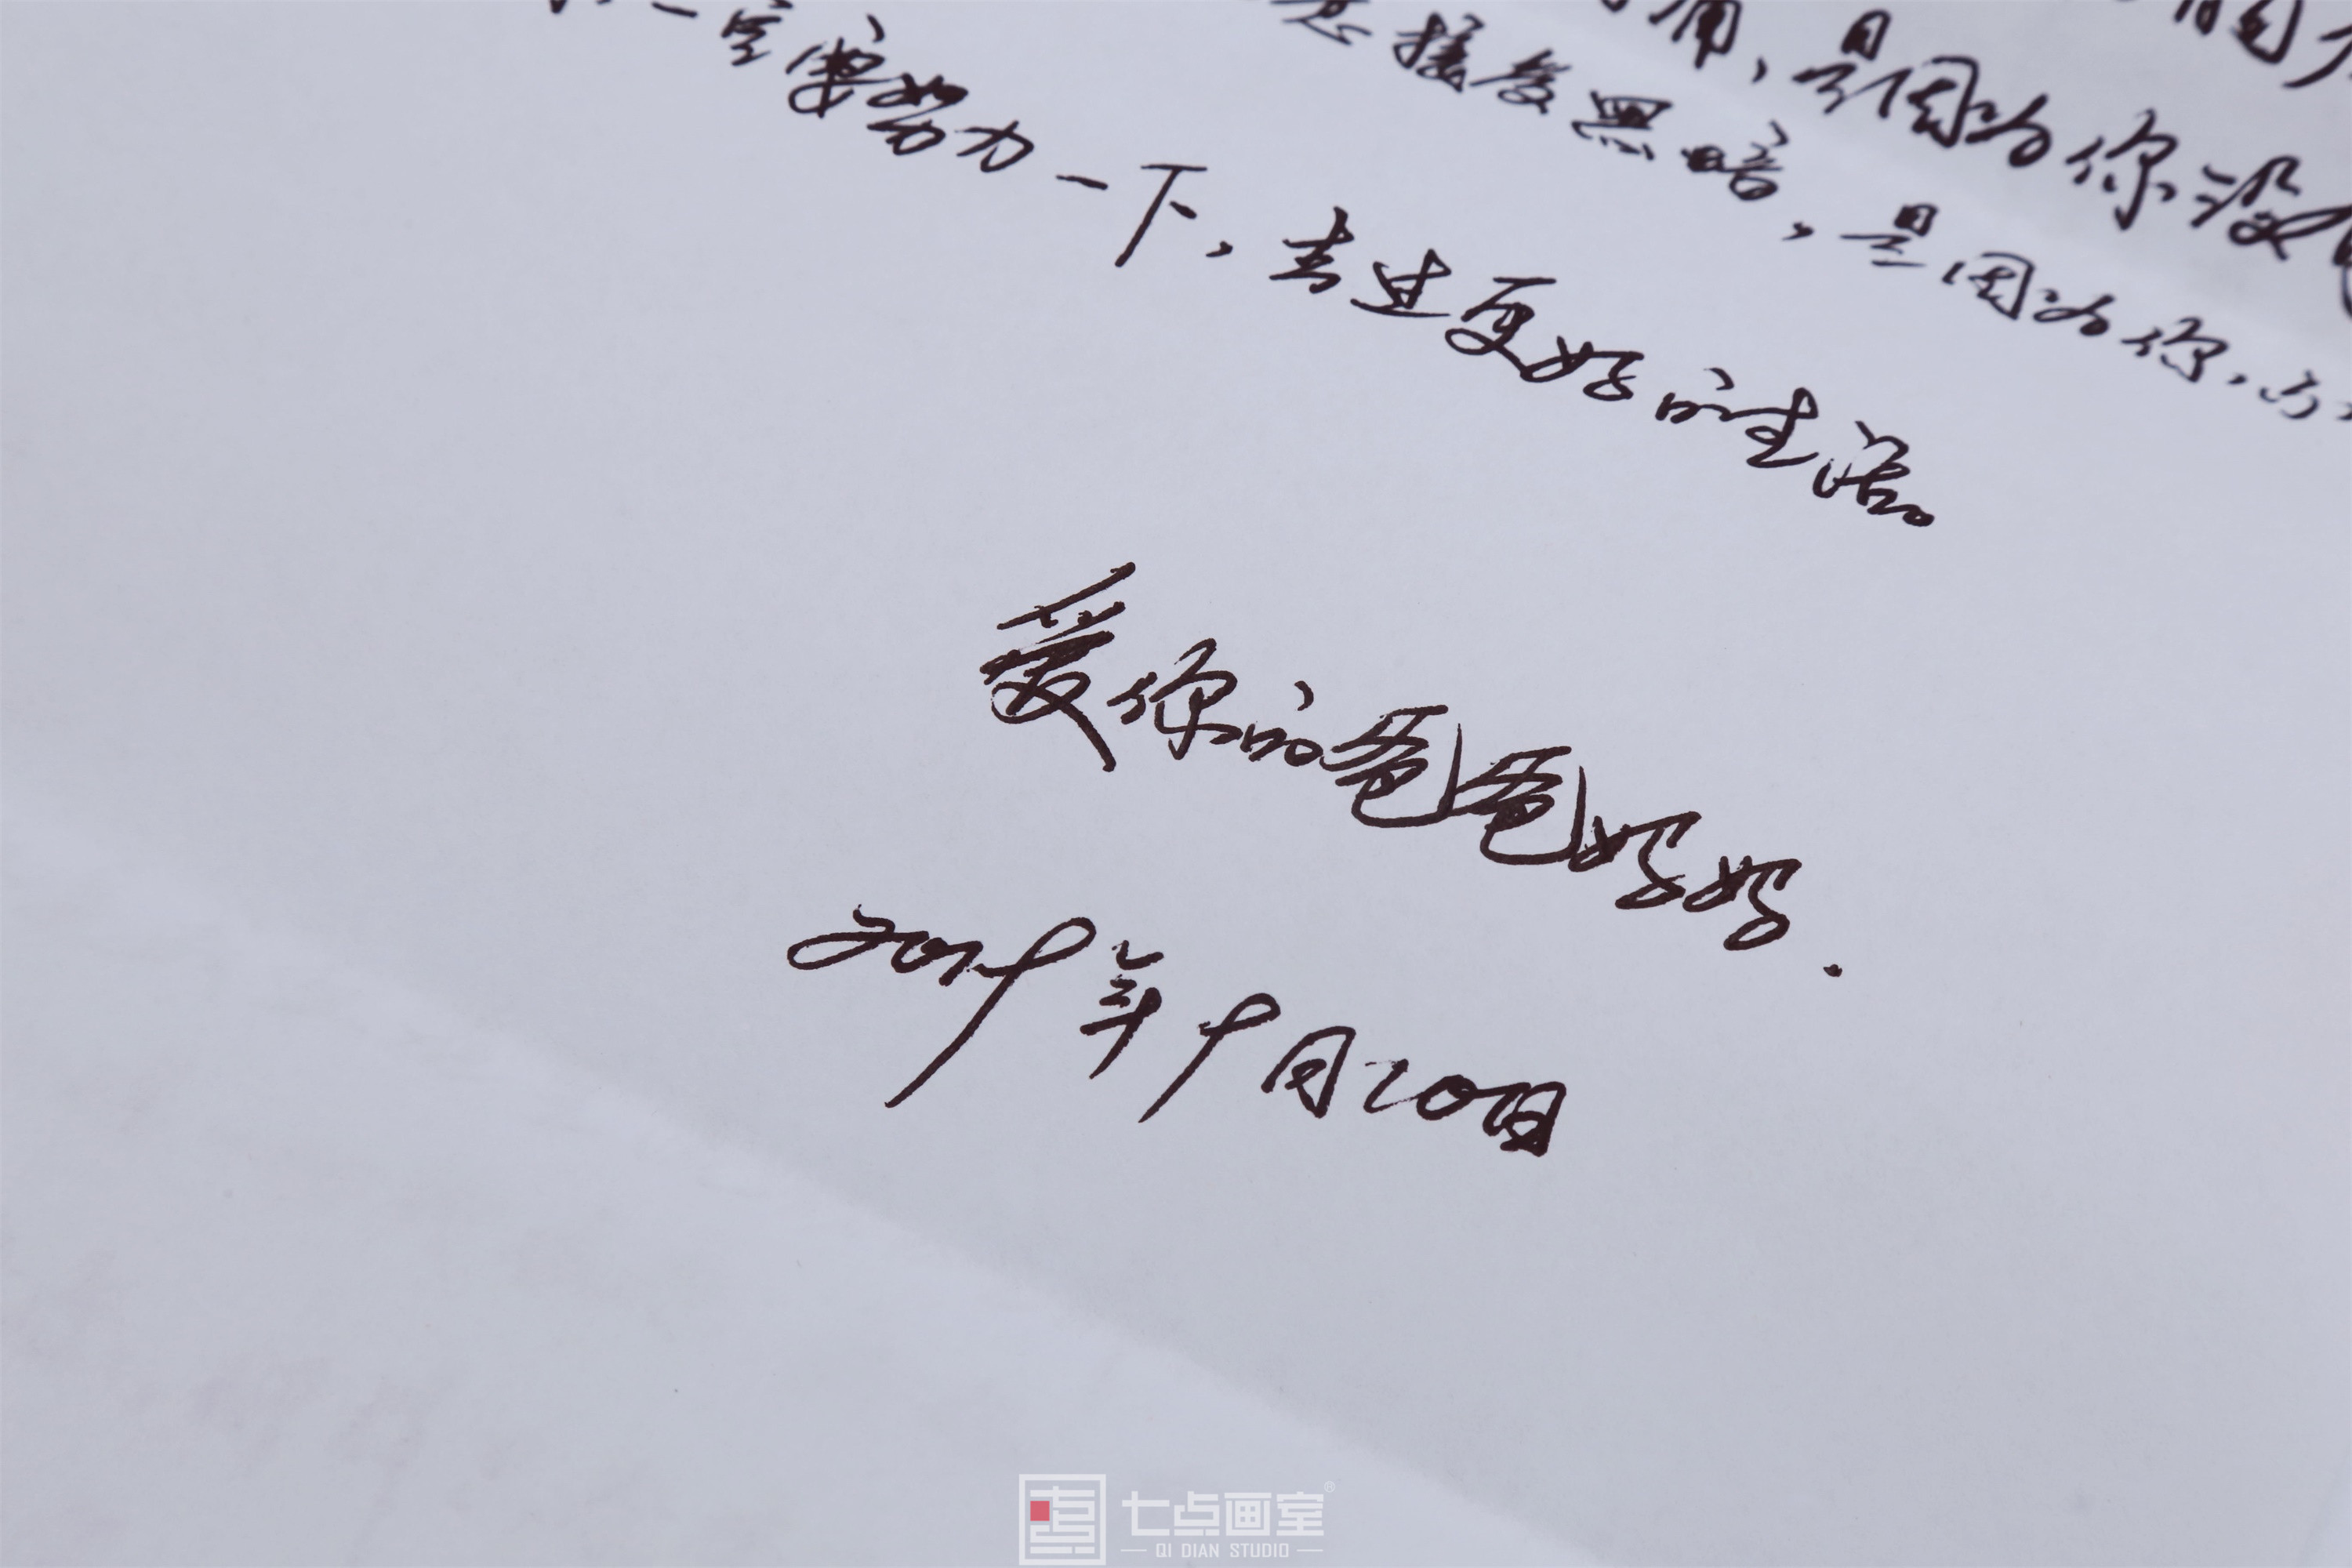 痛，是因为你没
意接受黑暗，是因为你，
一定要努力一下，去过更好的生活。
爱你的爸爸妈妈.
2019年9月20日
七点画室®
QI DIAN STUDIO